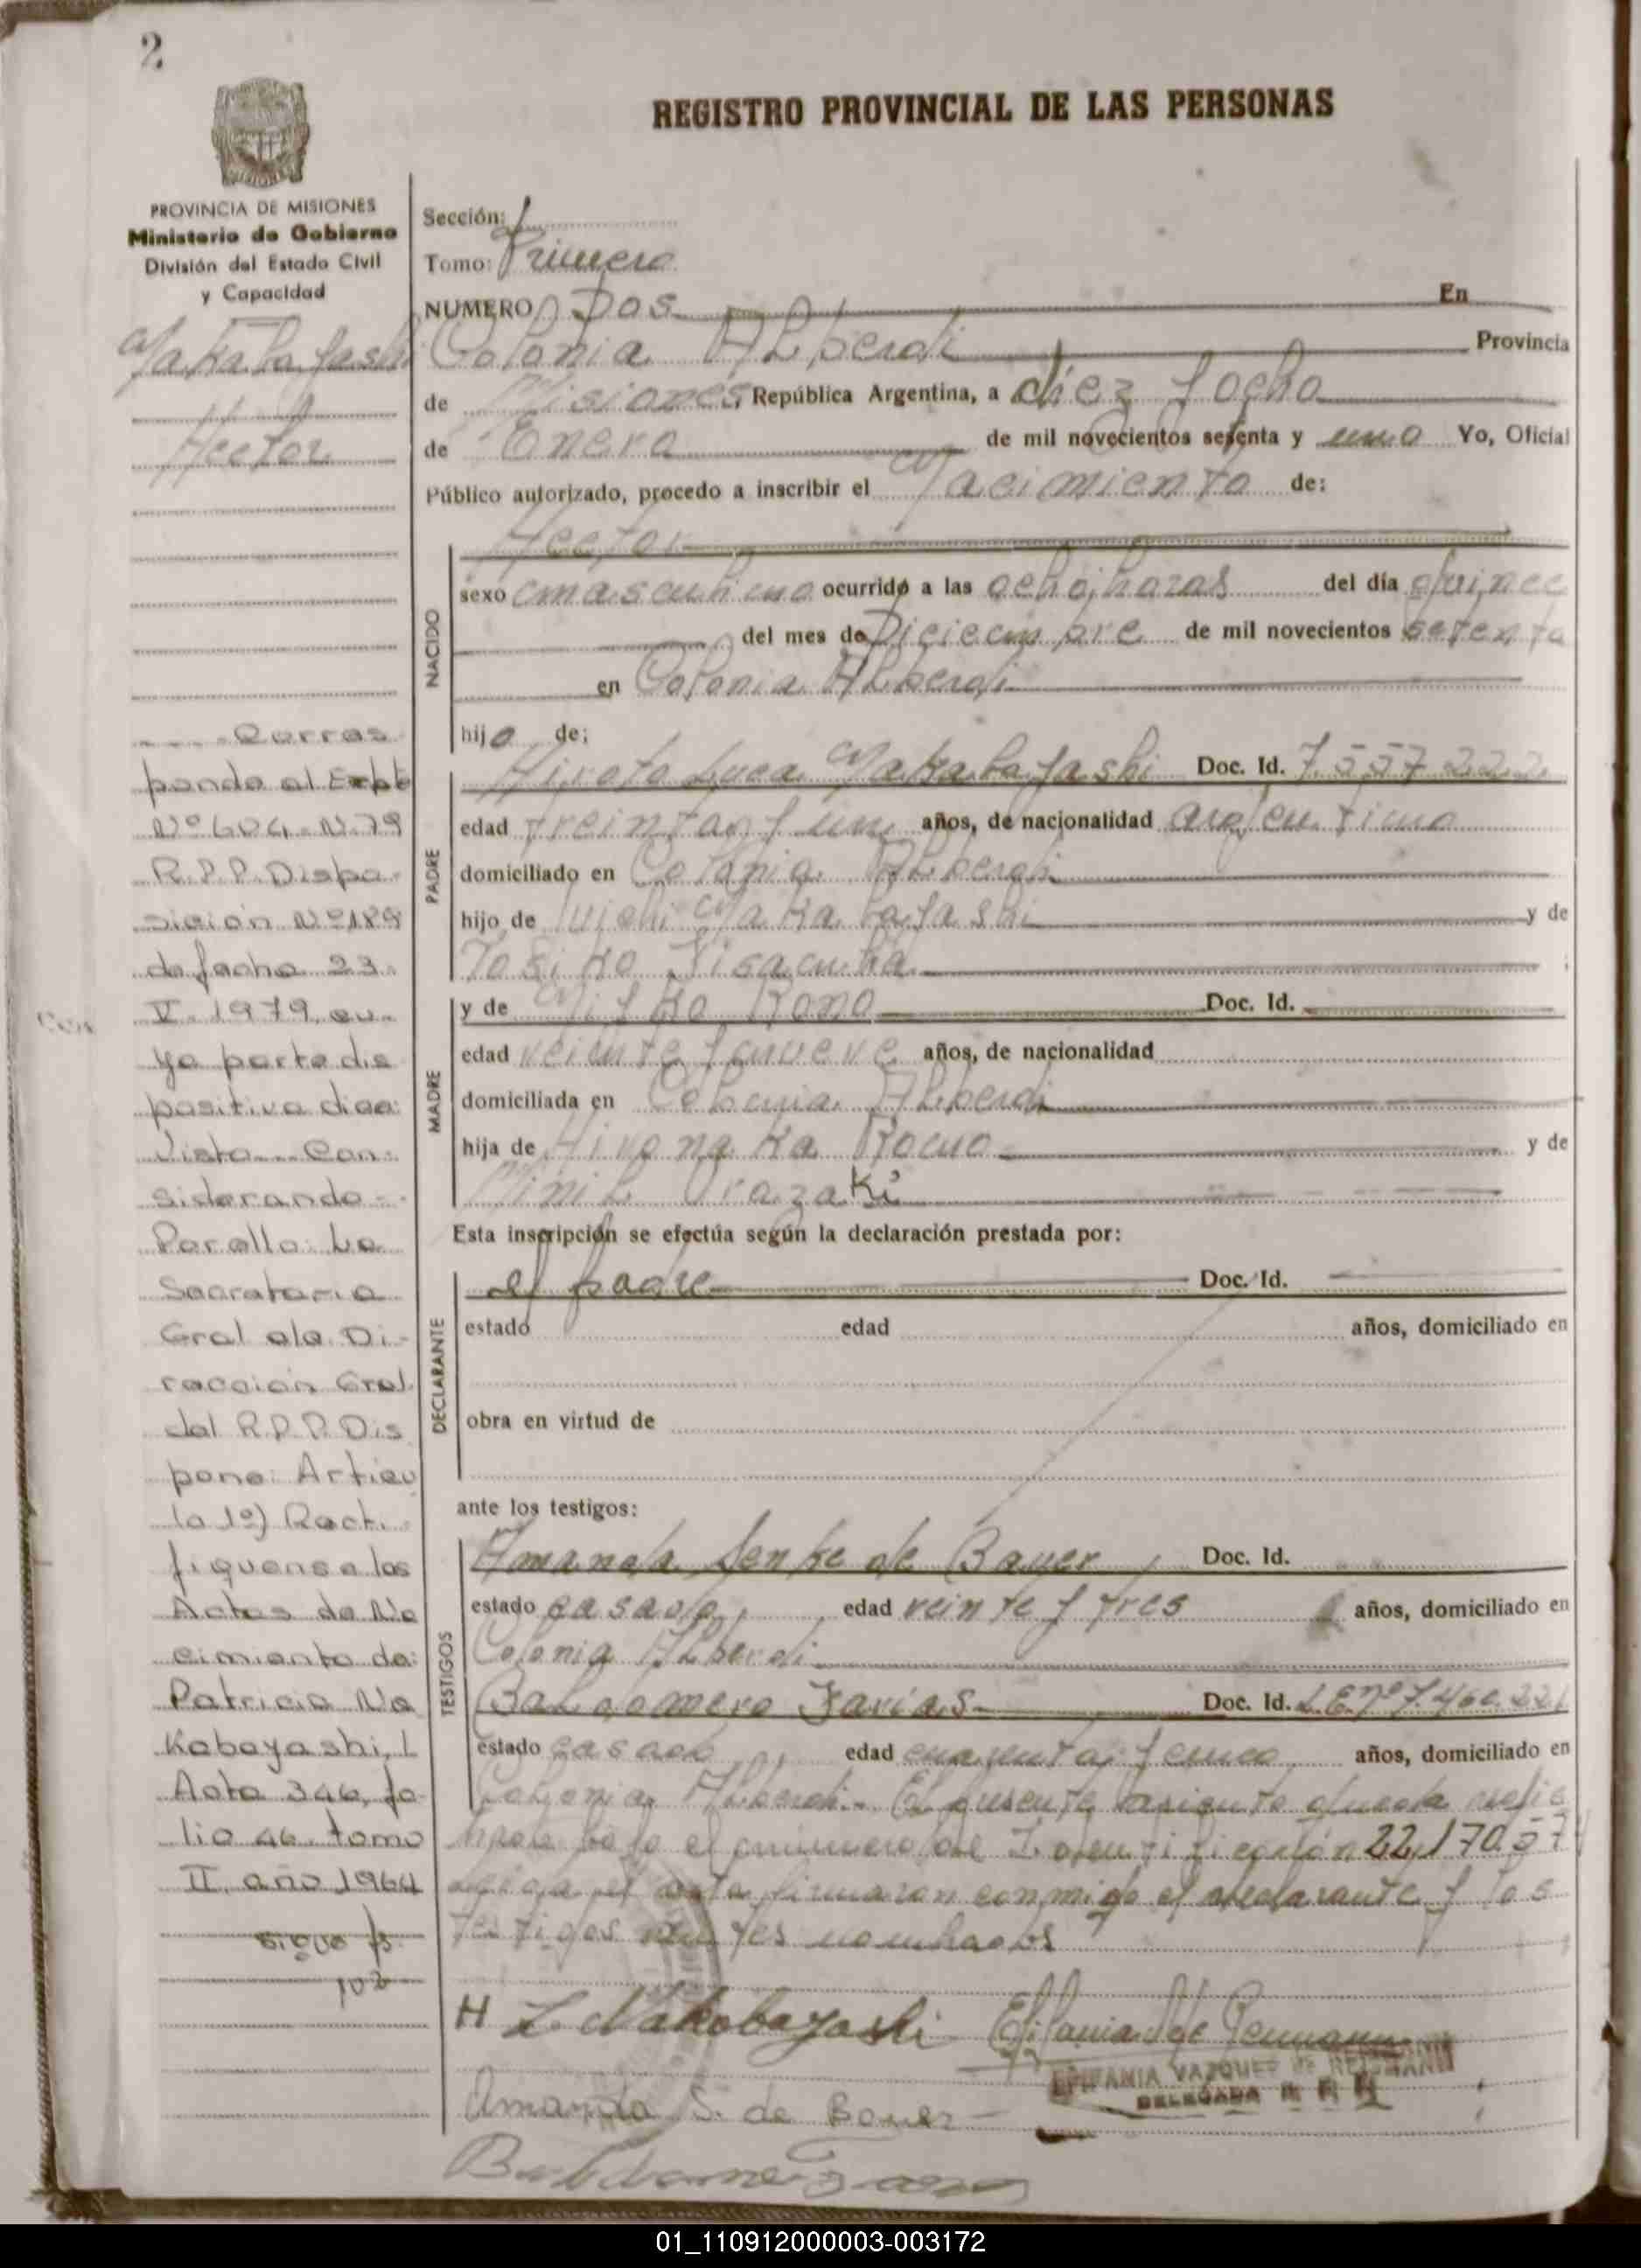 2
REGISTRO PROVINCIAL DE LAS PERSONAS
PROVINCIA DE MISIONES
Ministerio de Gobierno
División del Estado Civil
y Capacidad
Nakabayashi
Hector
Corres
ponde al Expte
Nº 604-N-79
R.P.P. Dispo-
sición Nº 189
de fecha 23-
V-1979 cu-
ya parte dis
positiva dice:
Visto... Con-
siderando-
Por ello: La
Secretaria
Gral de la Di-
rección Gral
del R.P.P. Dis
pone: Artícu
lo 1º) Recti-
fíquense los
Actas de Na
cimiento de:
Patricia Na
Kabayashi,
Acta 346, fo-
lio 46 tomo
II, año 1964
sigue fs.
102
Sección: 1
Tomo: Primero
NUMERO Dos En
Colonia Alberdi Provincia
de Misiones República Argentina, a diez y ocho
de Enero de mil novecientos setenta y uno Yo, Oficial
Público autorizado, procedo a inscribir el Nacimiento de:
Hector
NACIDO
sexo masculino ocurrido a las ocho horas del día quince
del mes de Diciembre de mil novecientos setenta
en Colonia Alberdi
hijo de:
PADRE
Hiroto Luca Nakabayashi Doc. Id. 7.557.222
edad treinta y un años, de nacionalidad argentino
domiciliado en Colonia Alberdi
hijo de Nakabayashi y de
Tosiko
MADRE
y de Doc. Id.
edad veinte y nueve años, de nacionalidad
domiciliada en Colonia Alberdi
hija de y de
Esta inscripción se efectúa según la declaración prestada por:
DECLARANTE
el padre Doc. Id.
estado edad años, domiciliado en
obra en virtud de
ante los testigos:
TESTIGOS
Amanda Senke de Bayer Doc. Id.
estado casada, edad veinte y tres años, domiciliado en
Colonia Alberdi
Baldomero Farías Doc. Id. L.E.nº 7.460.221
estado casado edad cuarenta y cinco años, domiciliado en
Colonia Alberdi.- El presente asiento queda
bajo el número de Identificación 22,170.57
el acta firmaron conmigo el declarante y los
testigos nombrados
H L Nakabayashi
EPIFANIA VAZQUEZ DE
DELEGADA
Amanda S. de Bayer
01_110912000003-003172